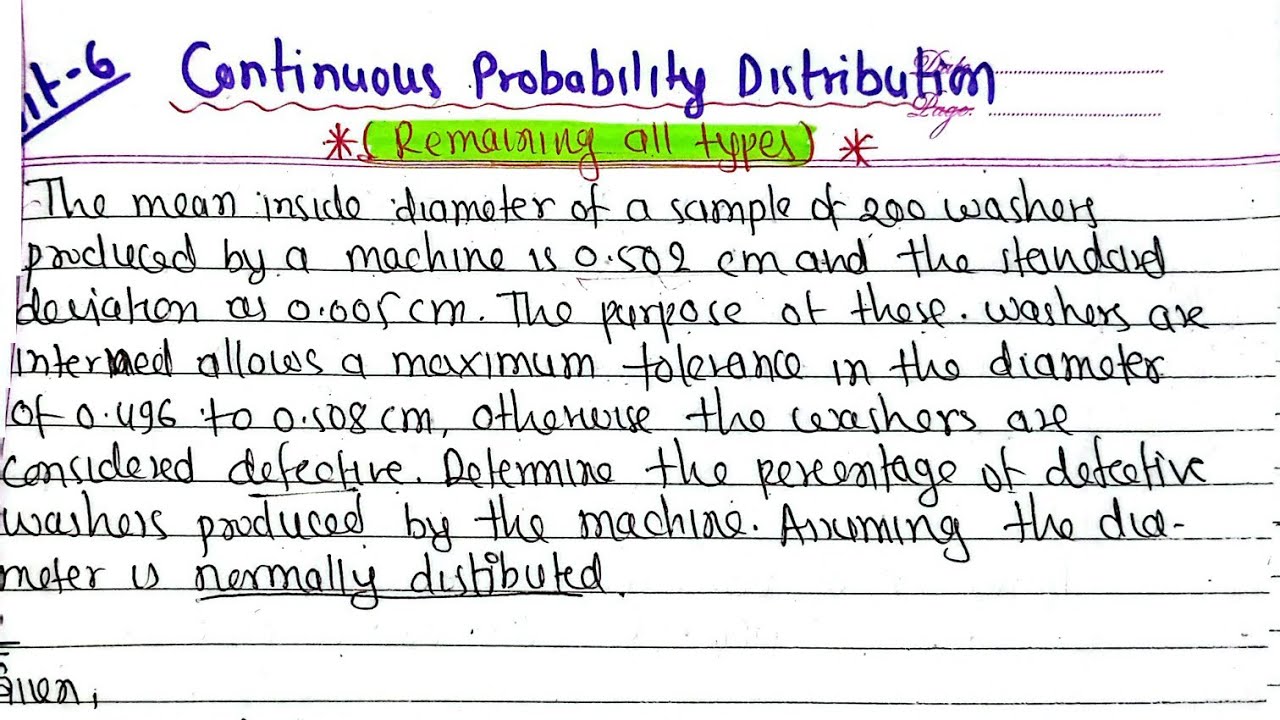 it-6 Continuous Probability Distribution
Date
Page
* (Remaining all types) *
The mean inside diameter of a sample of 200 washers
produced by a machine is 0.502 cm and the standard
deviation as 0.005 cm. The purpose of these. washers are
intermed allows a maximum tolerance in the diameter
of 0.496 to 0.508 cm, otherwise the washers are
considered defective. Determine the percentage of defective
washers produced by the machine. Assuming the dia-
meter is normally distibuted.
Given,